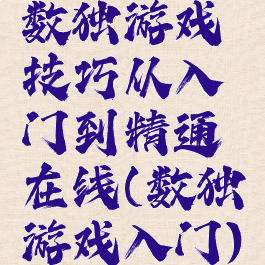 数独游戏
技巧从入
门到精通
在线(数独
游戏入门)